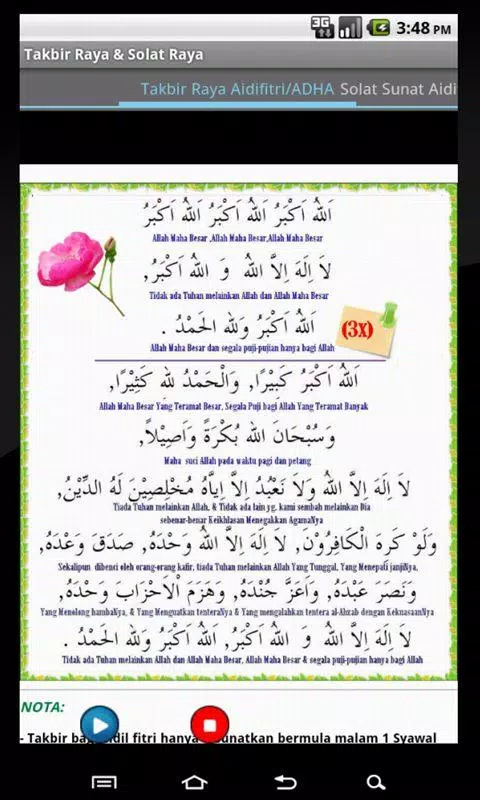 3G
3:48 PM
Takbir Raya & Solat Raya
Takbir Raya Aidifitri/ADHA Solat Sunat Aidi
اَللهُ اَكْبَرُ اَللهُ اَكْبَرُ اَللهُ اَكْبَرُ
Allah Maha Besar ,Allah Maha Besar,Allah Maha Besar
لَا اِلَهَ اِلاَّ اللهُ وَ اللهُ اَكْبَرُ,
Tidak ada Tuhan melainkan Allah dan Allah Maha Besar
اَللهُ اَكْبَرُ وَللهِ الحَمْدُ .
(3x)
Allah Maha Besar dan segala puji-pujian hanya bagi Allah
اَللهُ اَكْبَرُ كَبِيْرًا, وَالْحَمْدُ لِلهِ كَثِيْرًا,
Allah Maha Besar Yang Teramat Besar, Segala Puji bagi Allah Yang Teramat Banyak
وَسُبْحَانَ اللهِ بُكْرَةً وَاَصِيْلاً,
Maha suci Allah pada waktu pagi dan petang
لَا اِلَهَ اِلاَّ اللهُ وَلَا نَعْبُدُ اِلاَّ اِيَّاهُ مُخْلِصِيْنَ لَهُ الدِّيْنُ,
Tiada Tuhan melainkan Allah, & Tidak ada lain yg. kami sembah melainkan Dia
sebenar-benar Keikhlasan Menegakkan AgamaNya
وَلَوْ كَرِهَ الْكَافِرُوْنَ, لَا اِلَهَ اِلاَّ اللهُ وَحْدَهُ, صَدَقَ وَعْدَهُ,
Sekalipun dibenci oleh orang-orang kafir, tiada Tuhan melainkan Allah Yang Tunggal, Yang Menepati janjiNya,
وَنَصَرَ عَبْدَهُ, وَاَعَزَّ جُنْدَهُ, وَهَزَمَ الْاَحْزَابَ وَحْدَهُ,
Yang Menolong hambaNya, & Yang Menguatkan tenteraNya & Yang mengalahkan tentera al-Ahzab dengan KekuasaanNya
لَا اِلَهَ اِلاَّ اللهُ وَ اللهُ اَكْبَرُ, اَللهُ اَكْبَرُ وَللهِ الحَمْدُ .
Tidak ada Tuhan melainkan Allah dan Allah Maha Besar, Allah Maha Besar & segala puji-pujian hanya bagi Allah
NOTA:
- Takbir fitri hanya sunatkan bermula malam 1 Syawal